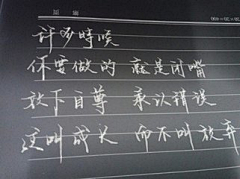 许多時候
你要做的 就是闭嘴
放下自尊 承认错误
这叫成长 而不叫放弃